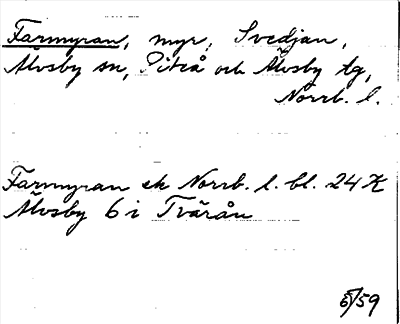 Farmyran, myr, Svedjan,
Älvsby sn, Piteå och Älvsby tg,
Norrb. l.
Farmyran ek Norrb. l. bl. 24 K
Älvsby 6 i Tvärån
/59